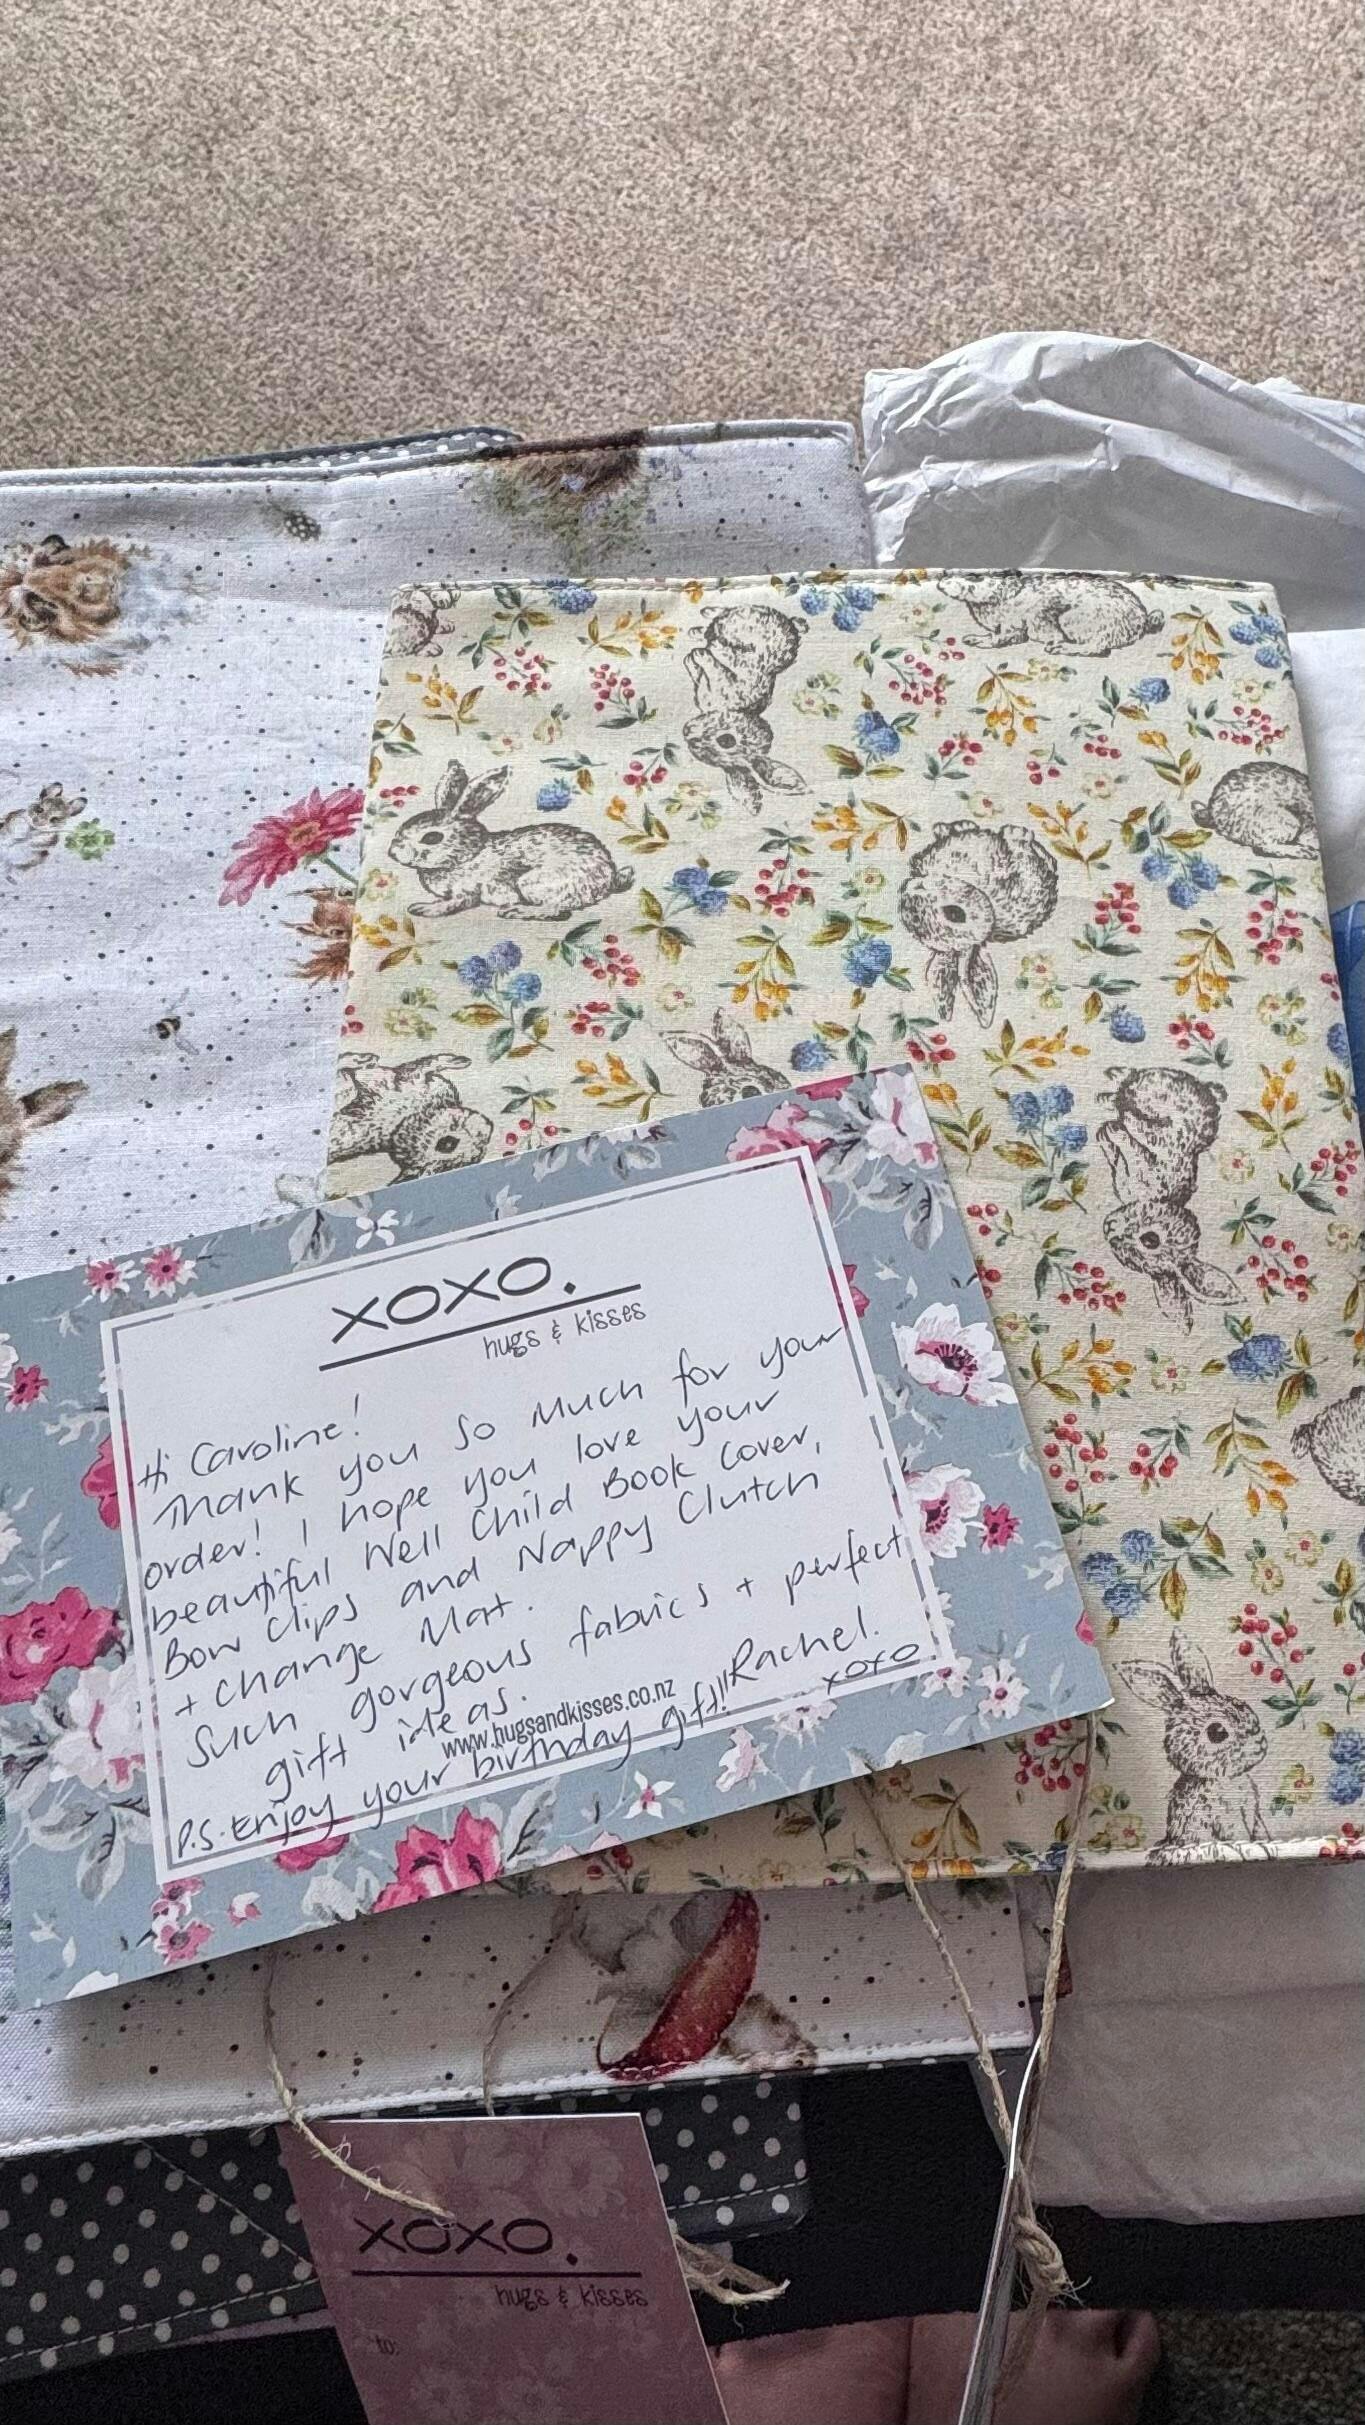 xoxo.
hugs & kisses
Hi Caroline!
Thank you so much for your
order! I hope you love your
beautiful Well Child Book Cover,
Bow Clips and Nappy Clutch
+ Change Mat.
Such gorgeous fabrics + perfect
gift ideas.
Rachel.
xoxo
www.hugsandkisses.co.nz
P.S. Enjoy your birthday gift!!
xoxo.
hugs & kisses
to: